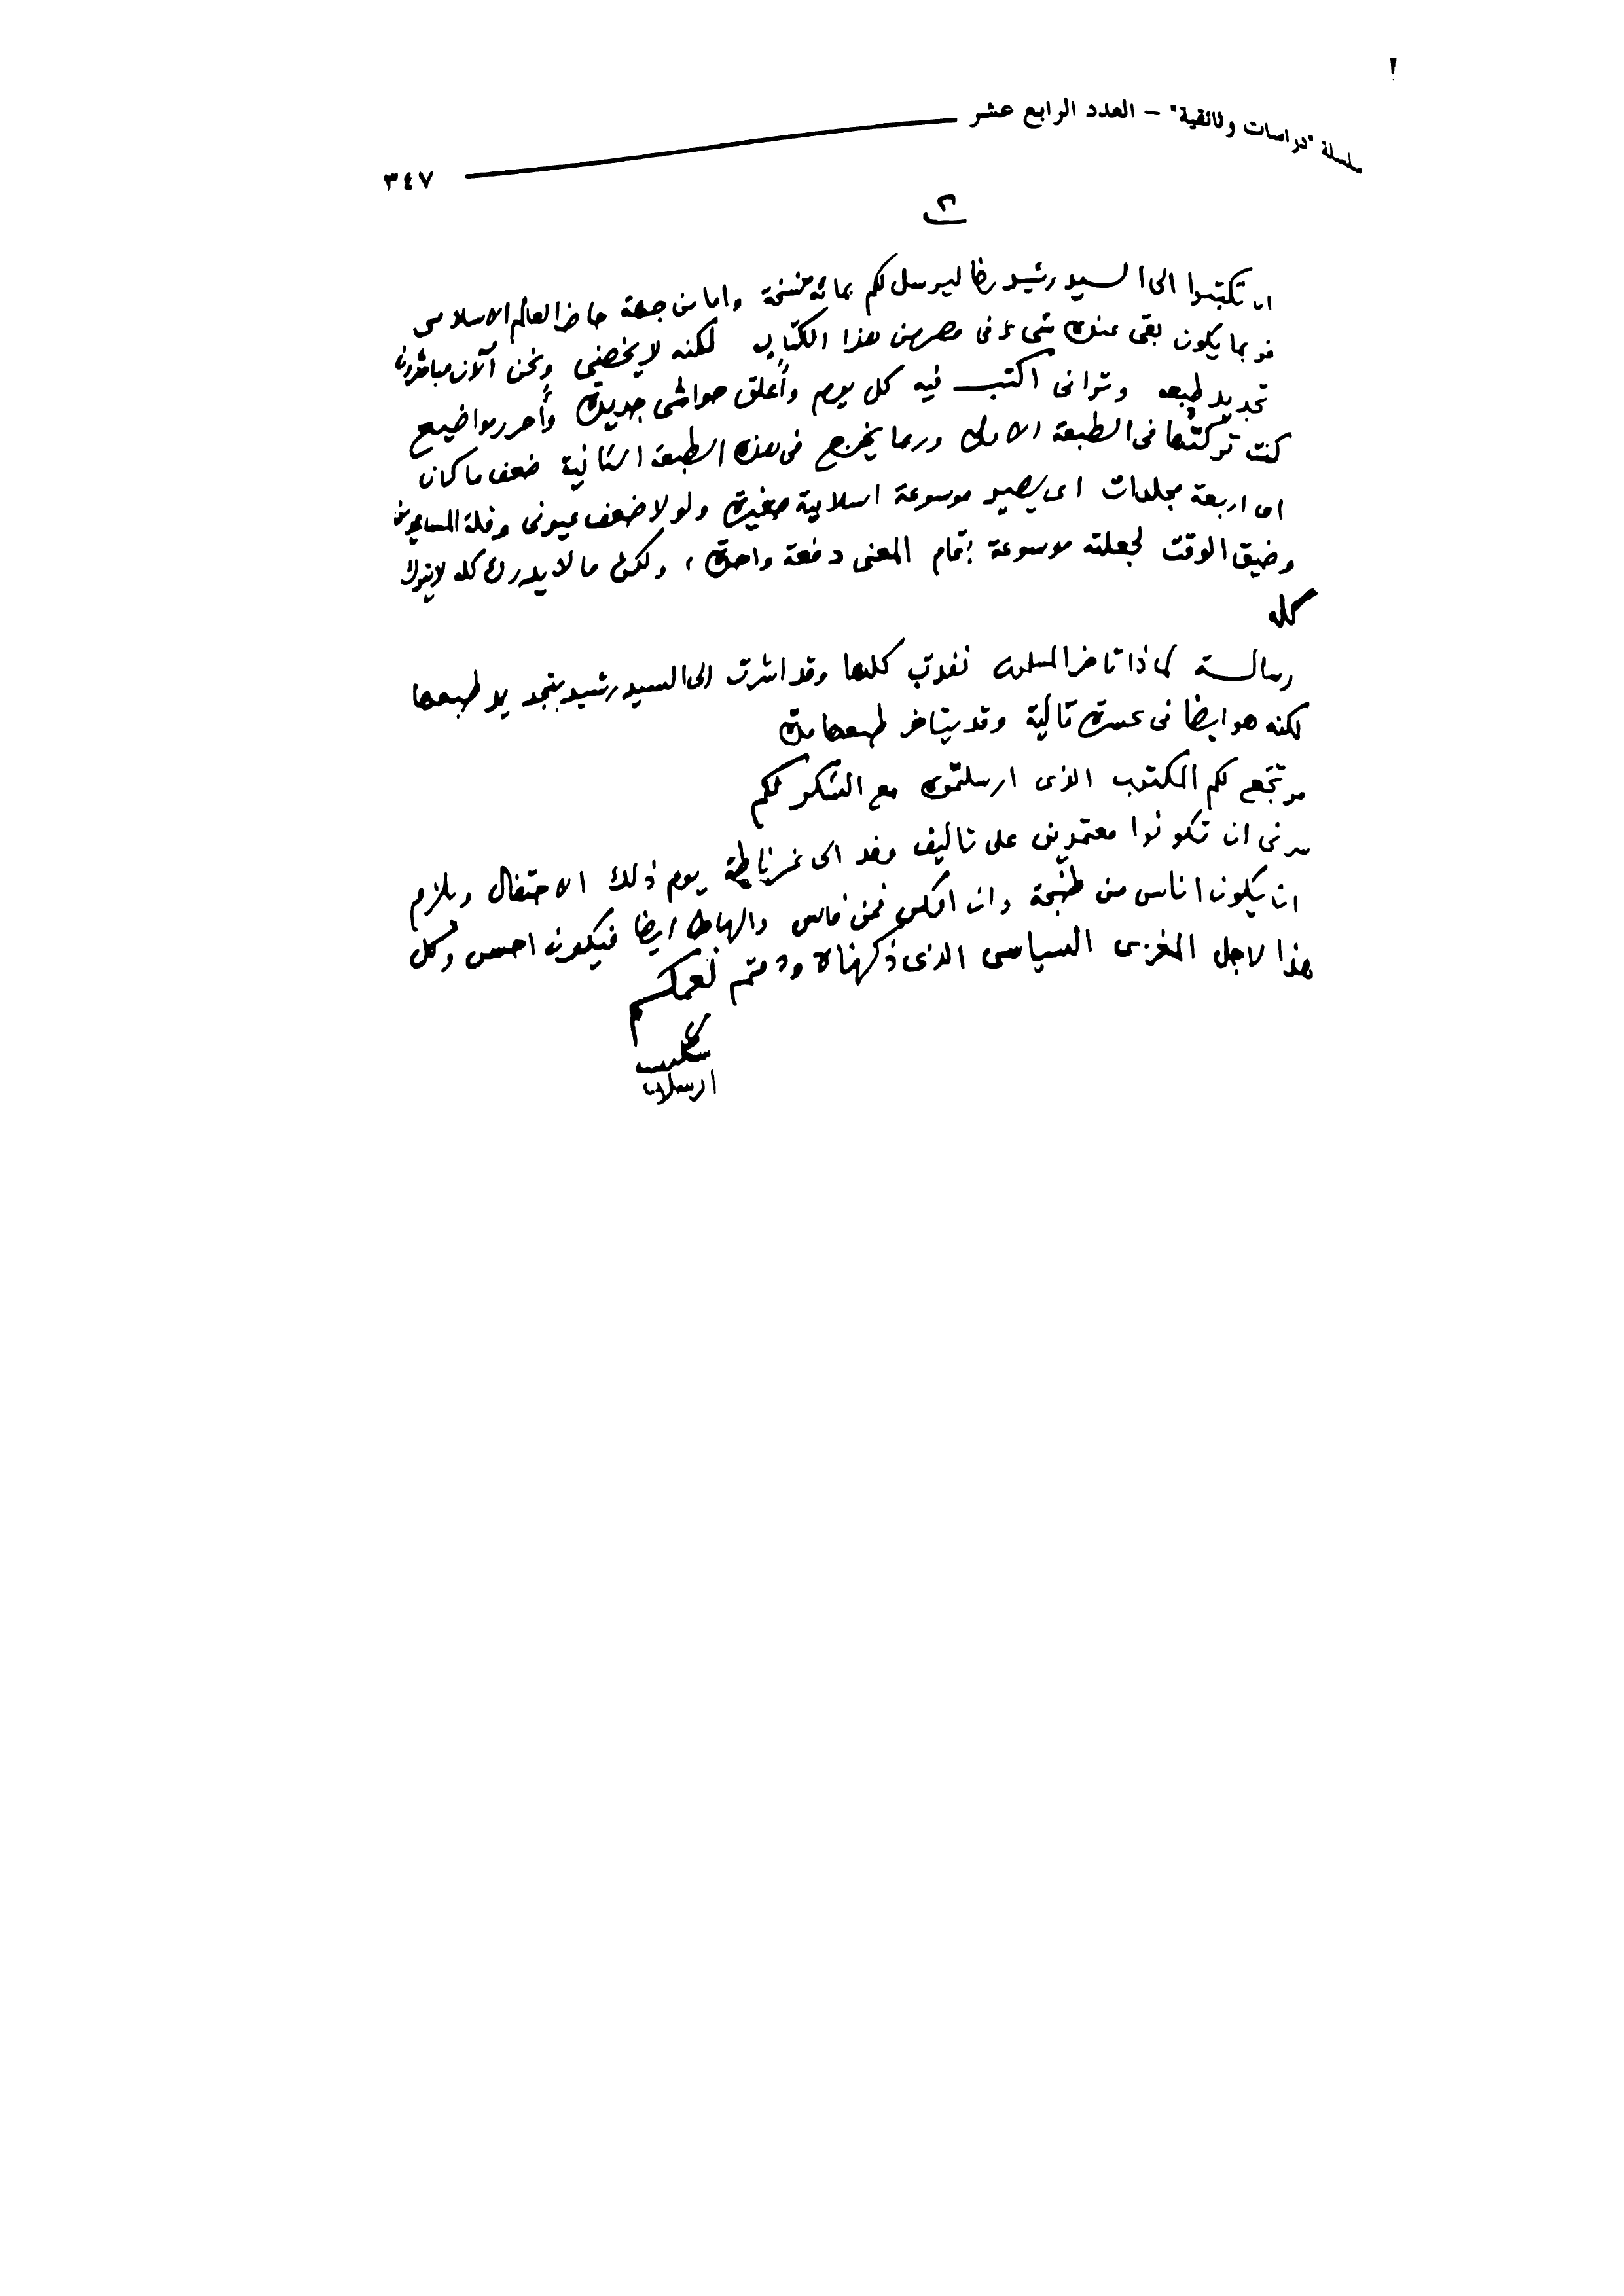 سلسلة "دراسات وثائقية" – العدد الرابع عشر
٣٤٧
٢
ان تكتبوا الى السيد رشيد رضا ليرسل لكم بمائة نسخة واما من جهة حاضر العالم الاسلامى
فربما يكون بقى عنده شىء فى مصر من هذا الكتاب لكنه لا يخصنى ونحن آلان مباشرون
تجديد طبعه وترانى اكتب فيه كل يوم وأعلق حواشى جديدة وأحرر مواضيع
كنت تركتها فى الطبعة الاولى وربما يخرج فى هذه الطبعة الثانية ضعف ما كان
اى اربعة مجلدات اى يصير موسوعة اسلامية صغيرة ولولا ضعف عيونى وقلة المساعدين
وضيق الوقت لجعلته موسوعة بتمام المعنى دفعة واحدة ، ولكن ما لا يدرك كله لا يترك
كله
رسالة لماذا تاخر المسلمون نفدت كلها وقد اشرت الى السيد رشيد بتجديد طبعها
لكنه هو ايضا فى عسرة مالية وقد يتاخر طبعها مدة
مرتجع لكم المكتوب الذى ارسلتموه مع الشكر لكم
سرنى ان تكونوا معتمدين على تاليف وفد الى غرناطة يوم ذلك الاحتفال ويلزم
ان يكون اناس من طنجة وان امكن فمن فاس والرباط ايضا فيكون احسن وكل
هذا لاجل المغزى السياسى الذى ذكرناه ودمتم لعمكم
شكيب
ارسلان